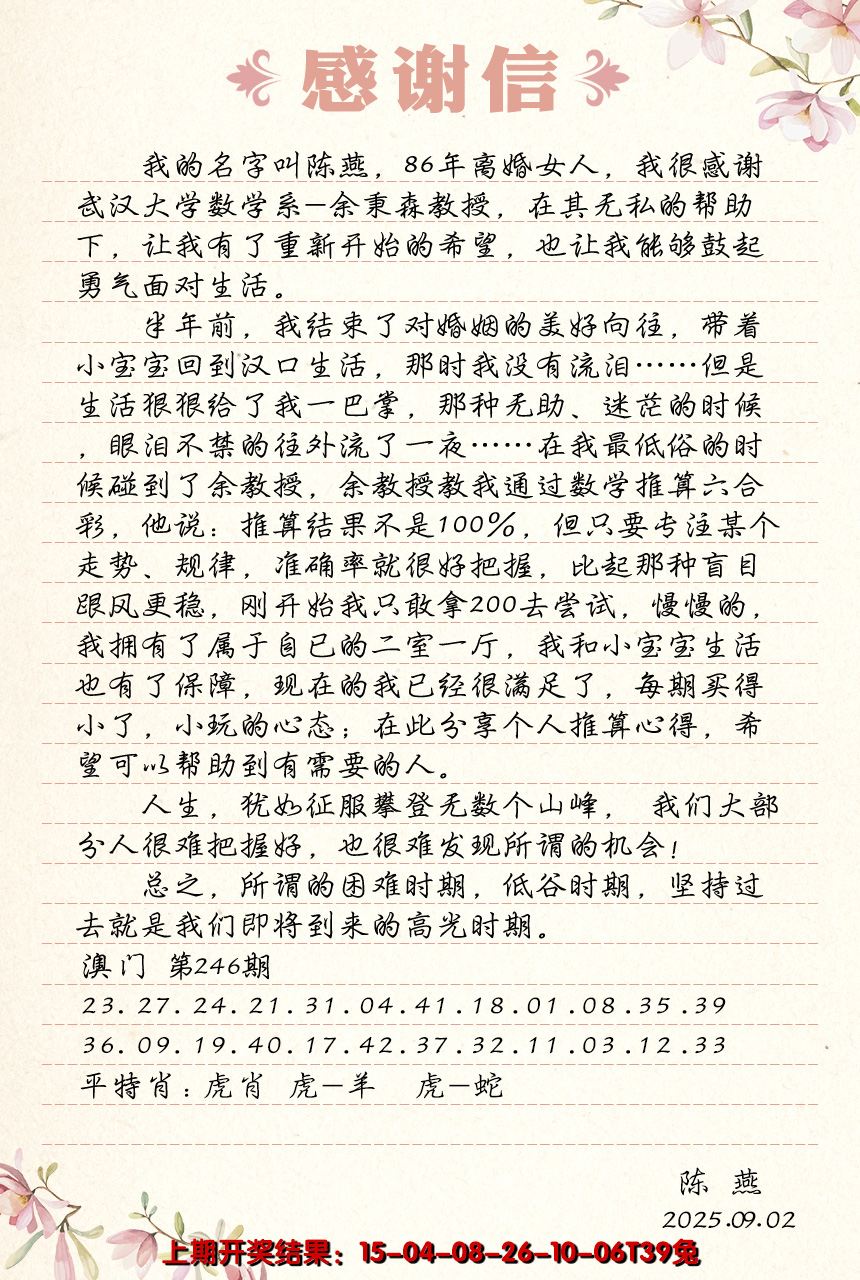 感谢信
我的名字叫陈燕，86年离婚女人，我很感谢
武汉大学数学系—余秉森教授，在其无私的帮助
下，让我有了重新开始的希望，也让我能够鼓起
勇气面对生活。
半年前，我结束了对婚姻的美好向往，带着
小宝宝回到汉口生活，那时我没有流泪……但是
生活狠狠给了我一巴掌，那种无助、迷茫的时候
，眼泪不禁的往外流了一夜……在我最低俗的时
候碰到了余教授，余教授教我通过数学推算六合
彩，他说：推算结果不是100%，但只要专注某个
走势、规律，准确率就很好把握，比起那种盲目
跟风更稳，刚开始我只敢拿200去尝试，慢慢的，
我拥有了属于自已的二室一厅，我和小宝宝生活
也有了保障，现在的我已经很满足了，每期买得
小了，小玩的心态；在此分享个人推算心得，希
望可以帮助到有需要的人。
人生，犹如征服攀登无数个山峰， 我们大部
分人很难把握好，也很难发现所谓的机会！
总之，所谓的困难时期，低谷时期，坚持过
去就是我们即将到来的高光时期。
澳门 第246期
23.27.24.21.31.04.41.18.01.08.35.39
36.09.19.40.17.42.37.32.11.03.12.33
平特肖：虎肖 虎—羊 虎—蛇
陈 燕
2025.09.02
上期开奖结果：15-04-08-26-10-06T39兔